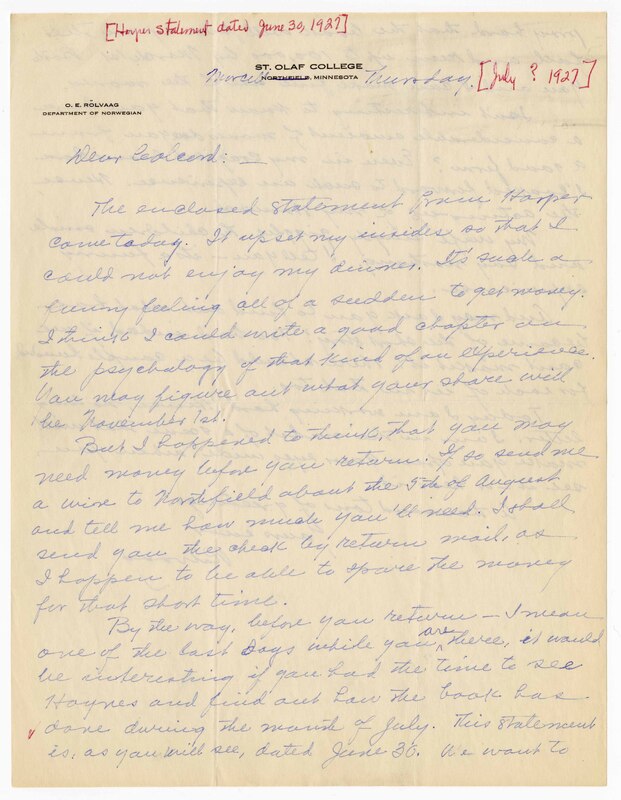 [Harper Statement dated June 30, 1927]
ST. OLAF COLLEGE
NORTHFIELD, MINNESOTA
Marcell Thursday. [July ? 1927]
O. E. ROLVAAG
DEPARTMENT OF NORWEGIAN
Dear Colcord: —
The enclosed statement from Harper
came today. It upset my insides so that I
could not enjoy my dinner. It's such a
funny feeling all of a sudden to get money.
I think I could write a good chapter on
the psychology of that kind of an experience.
You may figure out what your share will
be November 1st.
But I happened to think, that you may
need money before you return. If so send me
a wire to Northfield about the 5th of August
and tell me how much you'll need. I shall
send you the check by return mail, as
I happen to be able to spare the money
for that short time.
By the way, before you return — I mean
one of the last days while you are there, it would
be interesting if you had the time to see
Haynes and find out how the book has
done during the month of July. This statement
is, as you will see, dated June 30. We want to